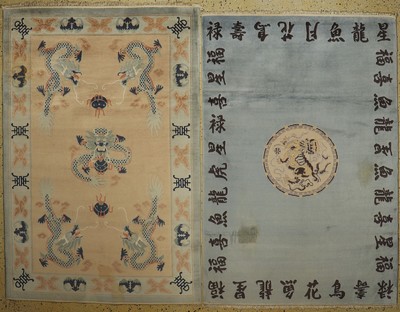 禄壽鳥花月魚龍星
福星喜禄星虎龍魚喜福
福喜魚龍喜魚龍喜星福
星龍魚花鳥壽禄